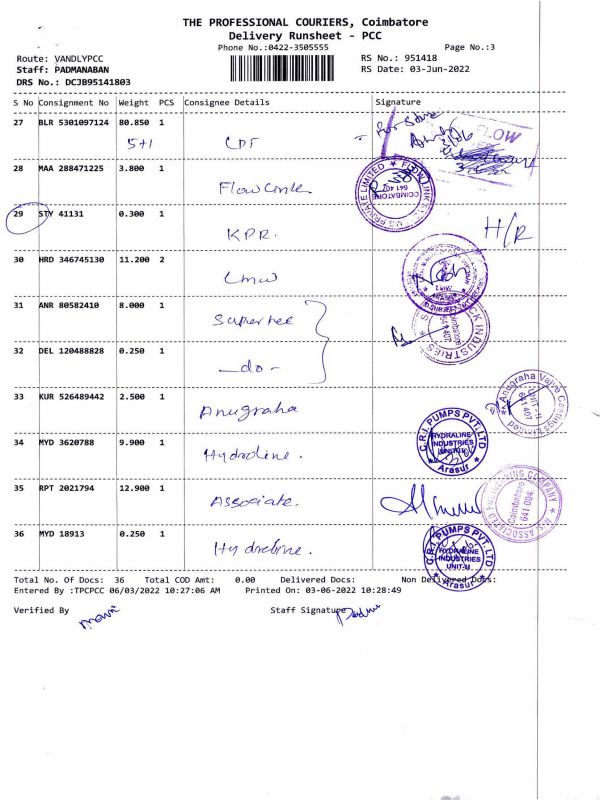 THE PROFESSIONAL COURIERS, Coimbatore
Delivery Runsheet - PCC
Phone No.:0422-3505555 Page No.:3
Route: VANDLYPCC RS No.: 951418
Staff: PADMANABAN RS Date: 03-Jun-2022
DRS No.: DCJB95141803
S No Consignment No Weight PCS Consignee Details Signature
27 BLR 5301097124 80.850 1
5+1 CPF
FLOW
28 MAA 288471225 3.800 1
Flowlink
FLOW LINK
PRIVATE LIMITED
COIMBATORE
641 407
29 STY 41131 0.300 1
KPR. H/R
30 HRD 346745130 11.200 2
LMW
31 ANR 80582410 8.000 1
Supertec
INDUSTRIES
Coimbatore
641 407
32 DEL 120488828 0.250 1
-do-
33 KUR 526489442 2.500 1
Anugraha
Anugraha Valve Castings Limited
UNIT - II
641 407
34 MYD 3620788 9.900 1
Hydroline.
C.R.I. PUMPS PVT. LTD
HYDRALINE
INDUSTRIES
UNIT-II
Arasur
35 RPT 2021794 12.900 1
Associate.
M/s ASSOCIATED ENGINEERING COMPANY
Coimbatore
641 004.
36 MYD 18913 0.250 1
Hydroline.
C.R.I. PUMPS PVT. LTD
HYDRALINE
INDUSTRIES
UNIT-II
Arasur
Total No. Of Docs: 36 Total COD Amt: 0.00 Delivered Docs: Non Delivered Docs:
Entered By :TPCPCC 06/03/2022 10:27:06 AM Printed On: 03-06-2022 10:28:49
Verified By Staff Signature